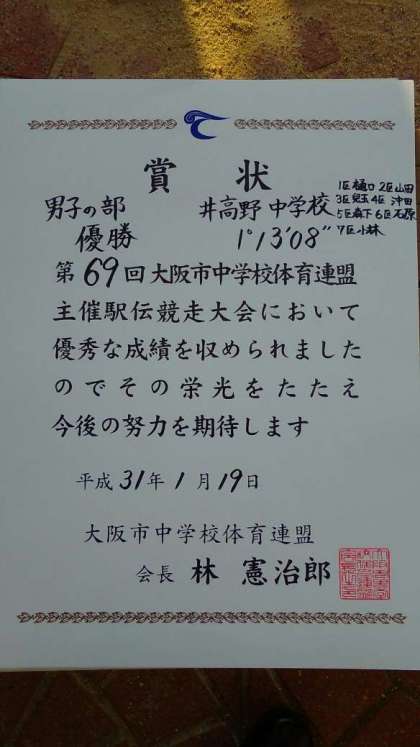 賞状
男子の部 井高野中学校
優勝 1°13′08″
1区樋口 2区山田
3区児玉 4区沖田
5区森下 6区石原
7区小林
第69回大阪市中学校体育連盟
主催駅伝競走大会において
優秀な成績を収められました
のでその栄光をたたえ
今後の努力を期待します
平成31年1月19日
大阪市中学校体育連盟
会長 林 憲治郎